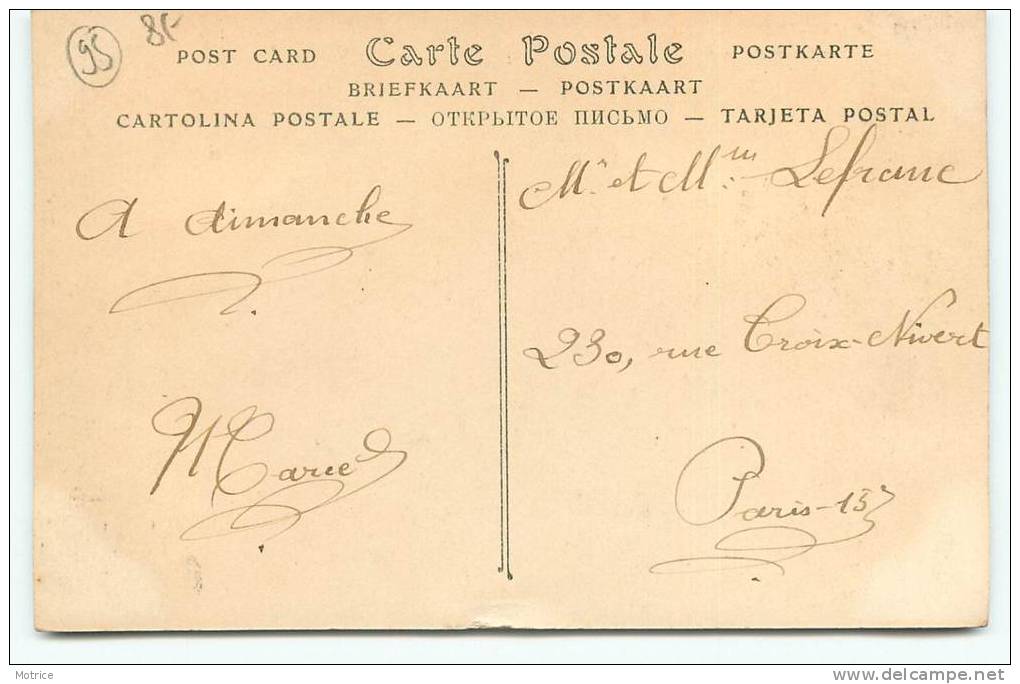 95 8F
POST CARD Carte Postale POSTKARTE
BRIEFKAART — POSTKAART
CARTOLINA POSTALE — ОТКРЫТОЕ ПИСЬМО — TARJETA POSTAL
A dimanche
Marcel
Mr et Mme Lefranc
230, rue Croix-Nivert
Paris-15e
Motrice
delcampe.net